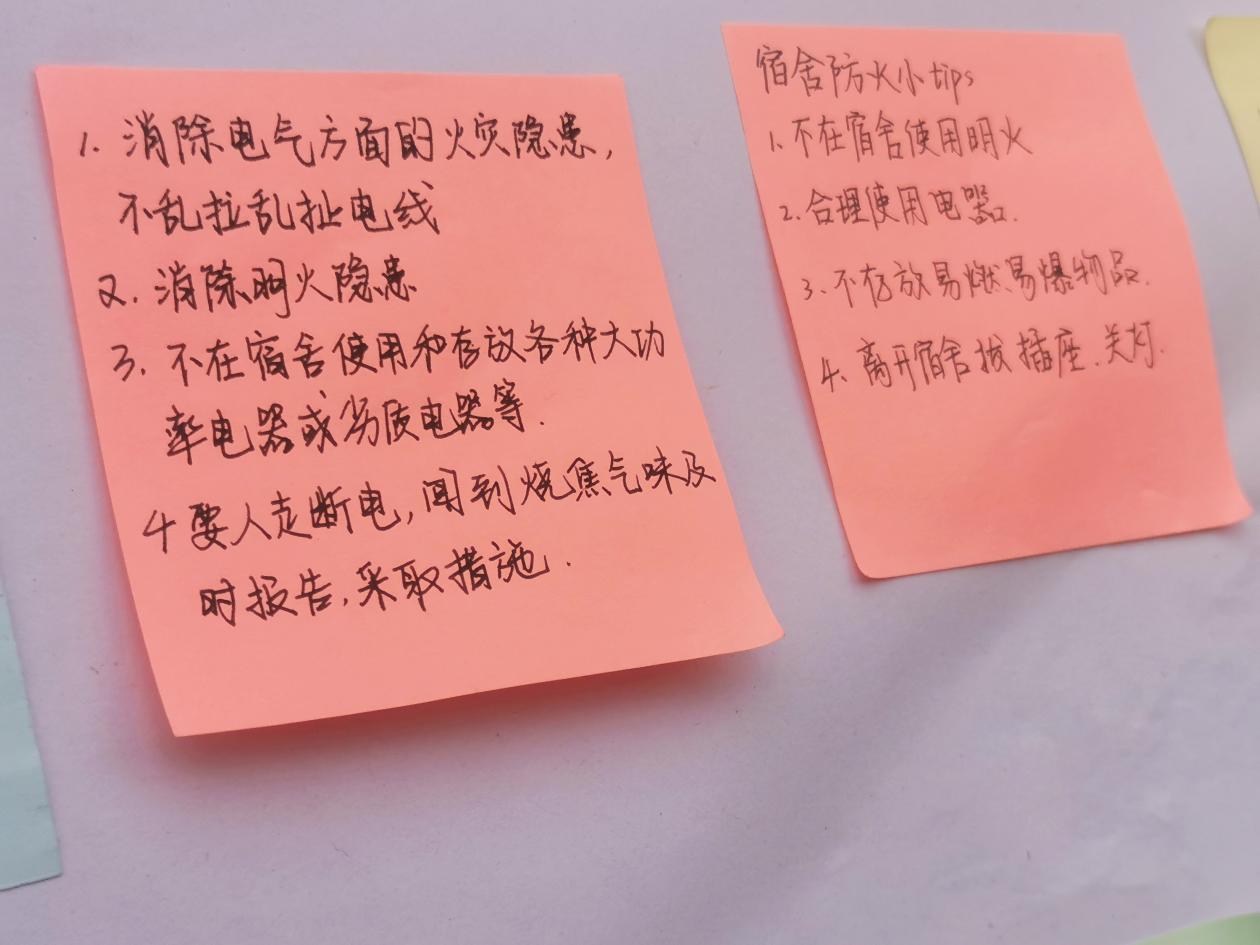 1. 消除电气方面的火灾隐患,
不乱拉乱扯电线
2. 消除明火隐患
3. 不在宿舍使用和存放各种大功
率电器或劣质电器等.
4 要人走断电,闻到烧焦气味及
时报告,采取措施.
宿舍防火小tips
1.不在宿舍使用明火
2.合理使用电器.
3.不存放易燃.易爆物品.
4.离开宿舍拔插座.关灯.